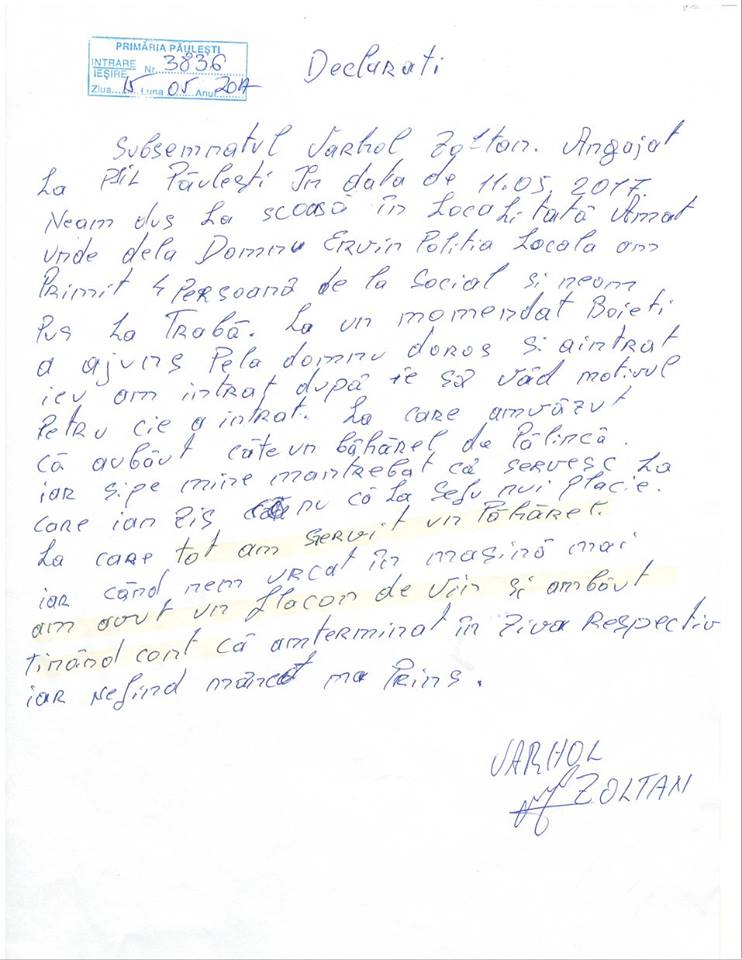 PRIMĂRIA PĂULEȘTI
INTRARE Nr. 3836
IEȘIRE
Ziua 15 Luna 05 Anul 2017
Declarati
Subsemnatul Varhol Zoltan. Angajat
La Păulești In data de 11.05.2017.
Neam dus La scoasă în Localitată Amat
unde dela Domnu Ervin Politia Locala am
Primit 4 Persoană de la Social si neam
Pus La Trabă. La un momendat Boieti
a ajuns Pela domnu doros si aintrat
ieu am intrat după ie să văd motivul
Petru cie a intrat. La care amvăzut
că aubăut câte un băhărel de Pălincă.
iar sipe mine mantrebat că servesc La
care ian zis nu că La Sefu nui Placie.
La care tot am servit un Păhărel.
iar când nem urcat în mașină mai
am avut un flacon de vin și ambăut
tinând cont că amterminat în ziua Respectiv
iar nefind mâncat ma Prins.
VARHOL
ZOLTAN